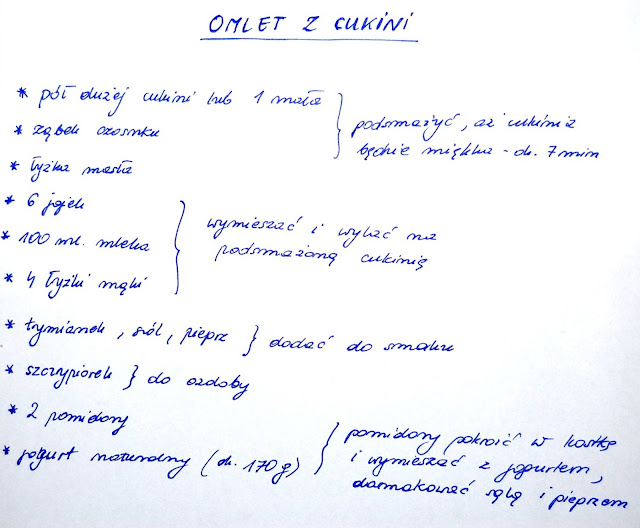 OMLET Z CUKINI
* pół dużej cukini lub 1 mała
* ząbek czosnku
* łyżka masła
} podsmażyć, aż cukinia
będzie miękka - ok. 7 min
* 6 jajek
* 100 ml. mleka
* 4 łyżki mąki
} wymieszać i wylać na
podsmażoną cukinię
* tymianek, sól, pieprz } dodać do smaku
* szczypiorek } do ozdoby
* 2 pomidory
* jogurt naturalny (ok. 170 g)
} pomidory pokroić w kostkę
i wymieszać z jogurtem,
dosmakować solą i pieprzem